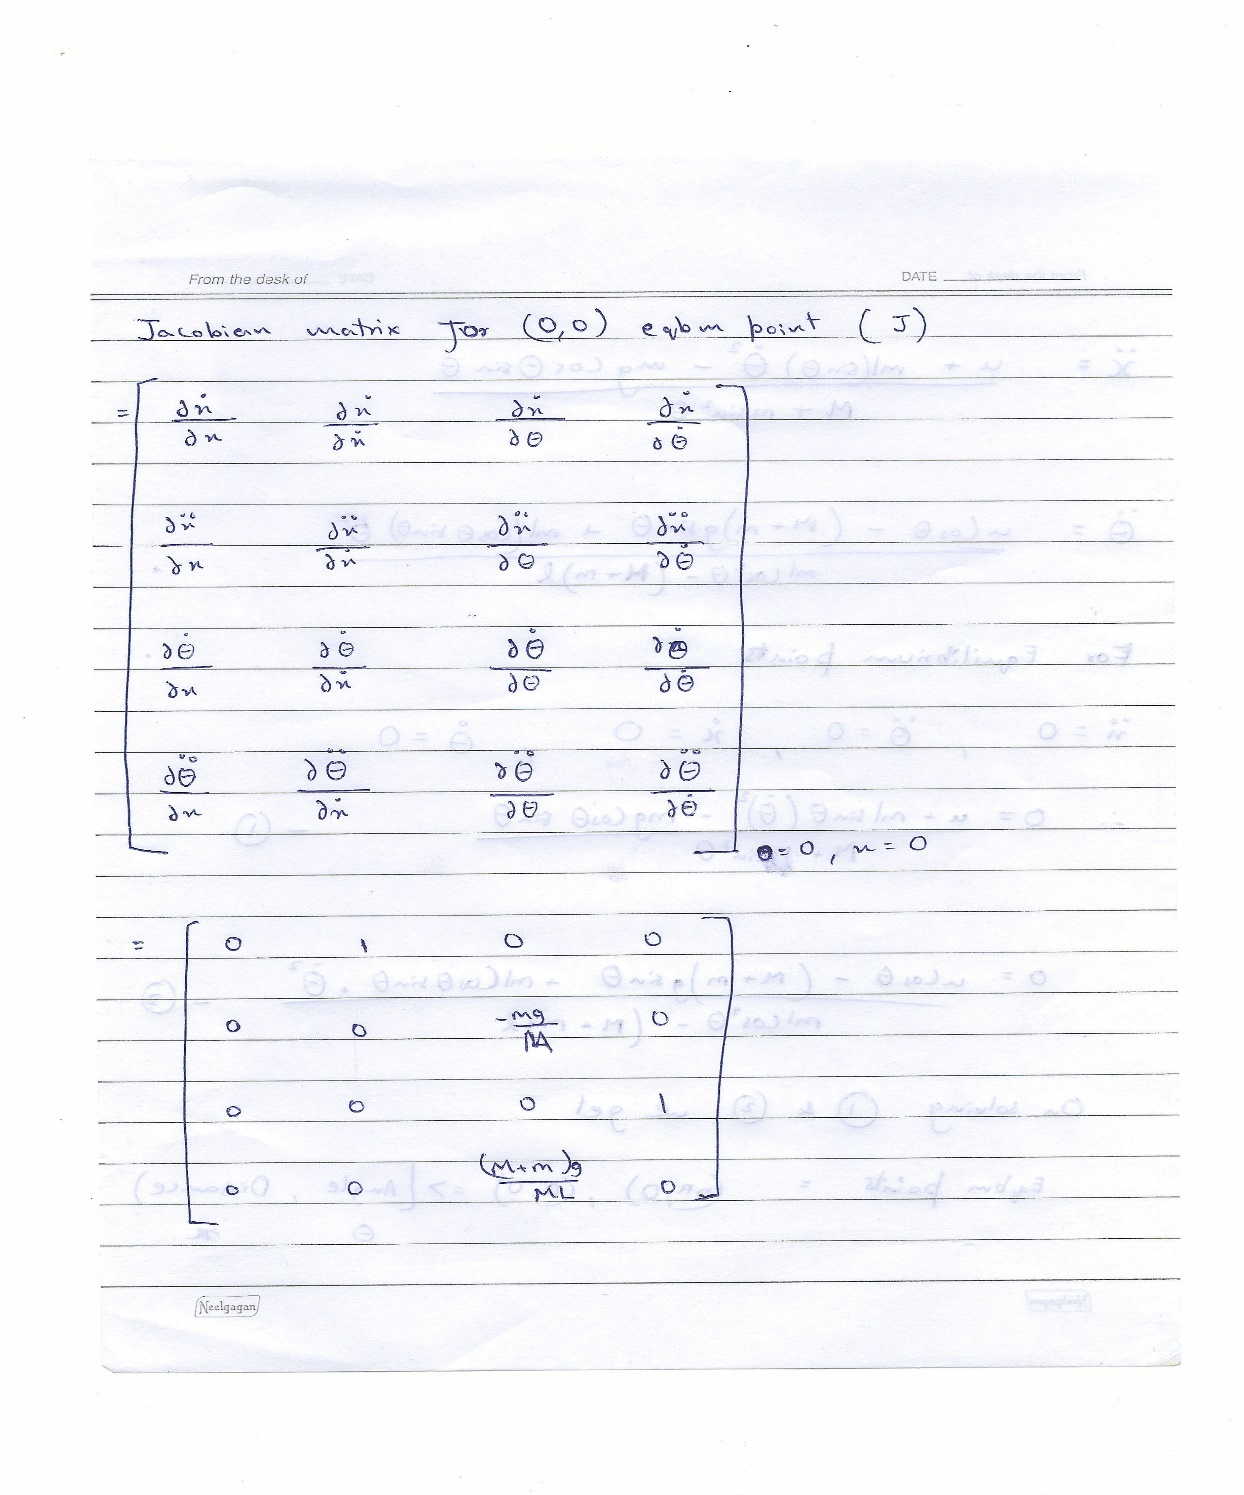 From the desk of DATE
Jacobian matrix for (0,0) eqbm point (J)
= [ ∂ẋ/∂x ∂ẋ/∂ẋ ∂ẋ/∂θ ∂ẋ/∂θ̇
∂ẍ/∂x ∂ẍ/∂ẋ ∂ẍ/∂θ ∂ẍ/∂θ̇
∂θ̇/∂x ∂θ̇/∂ẋ ∂θ̇/∂θ ∂θ̇/∂θ̇
∂θ̈/∂x ∂θ̈/∂ẋ ∂θ̈/∂θ ∂θ̈/∂θ̇ ]
θ=0, x=0
= [ 0 1 0 0
0 0 -mg/M 0
0 0 0 1
0 0 (M+m)g/ML 0 ]
Neelgagan